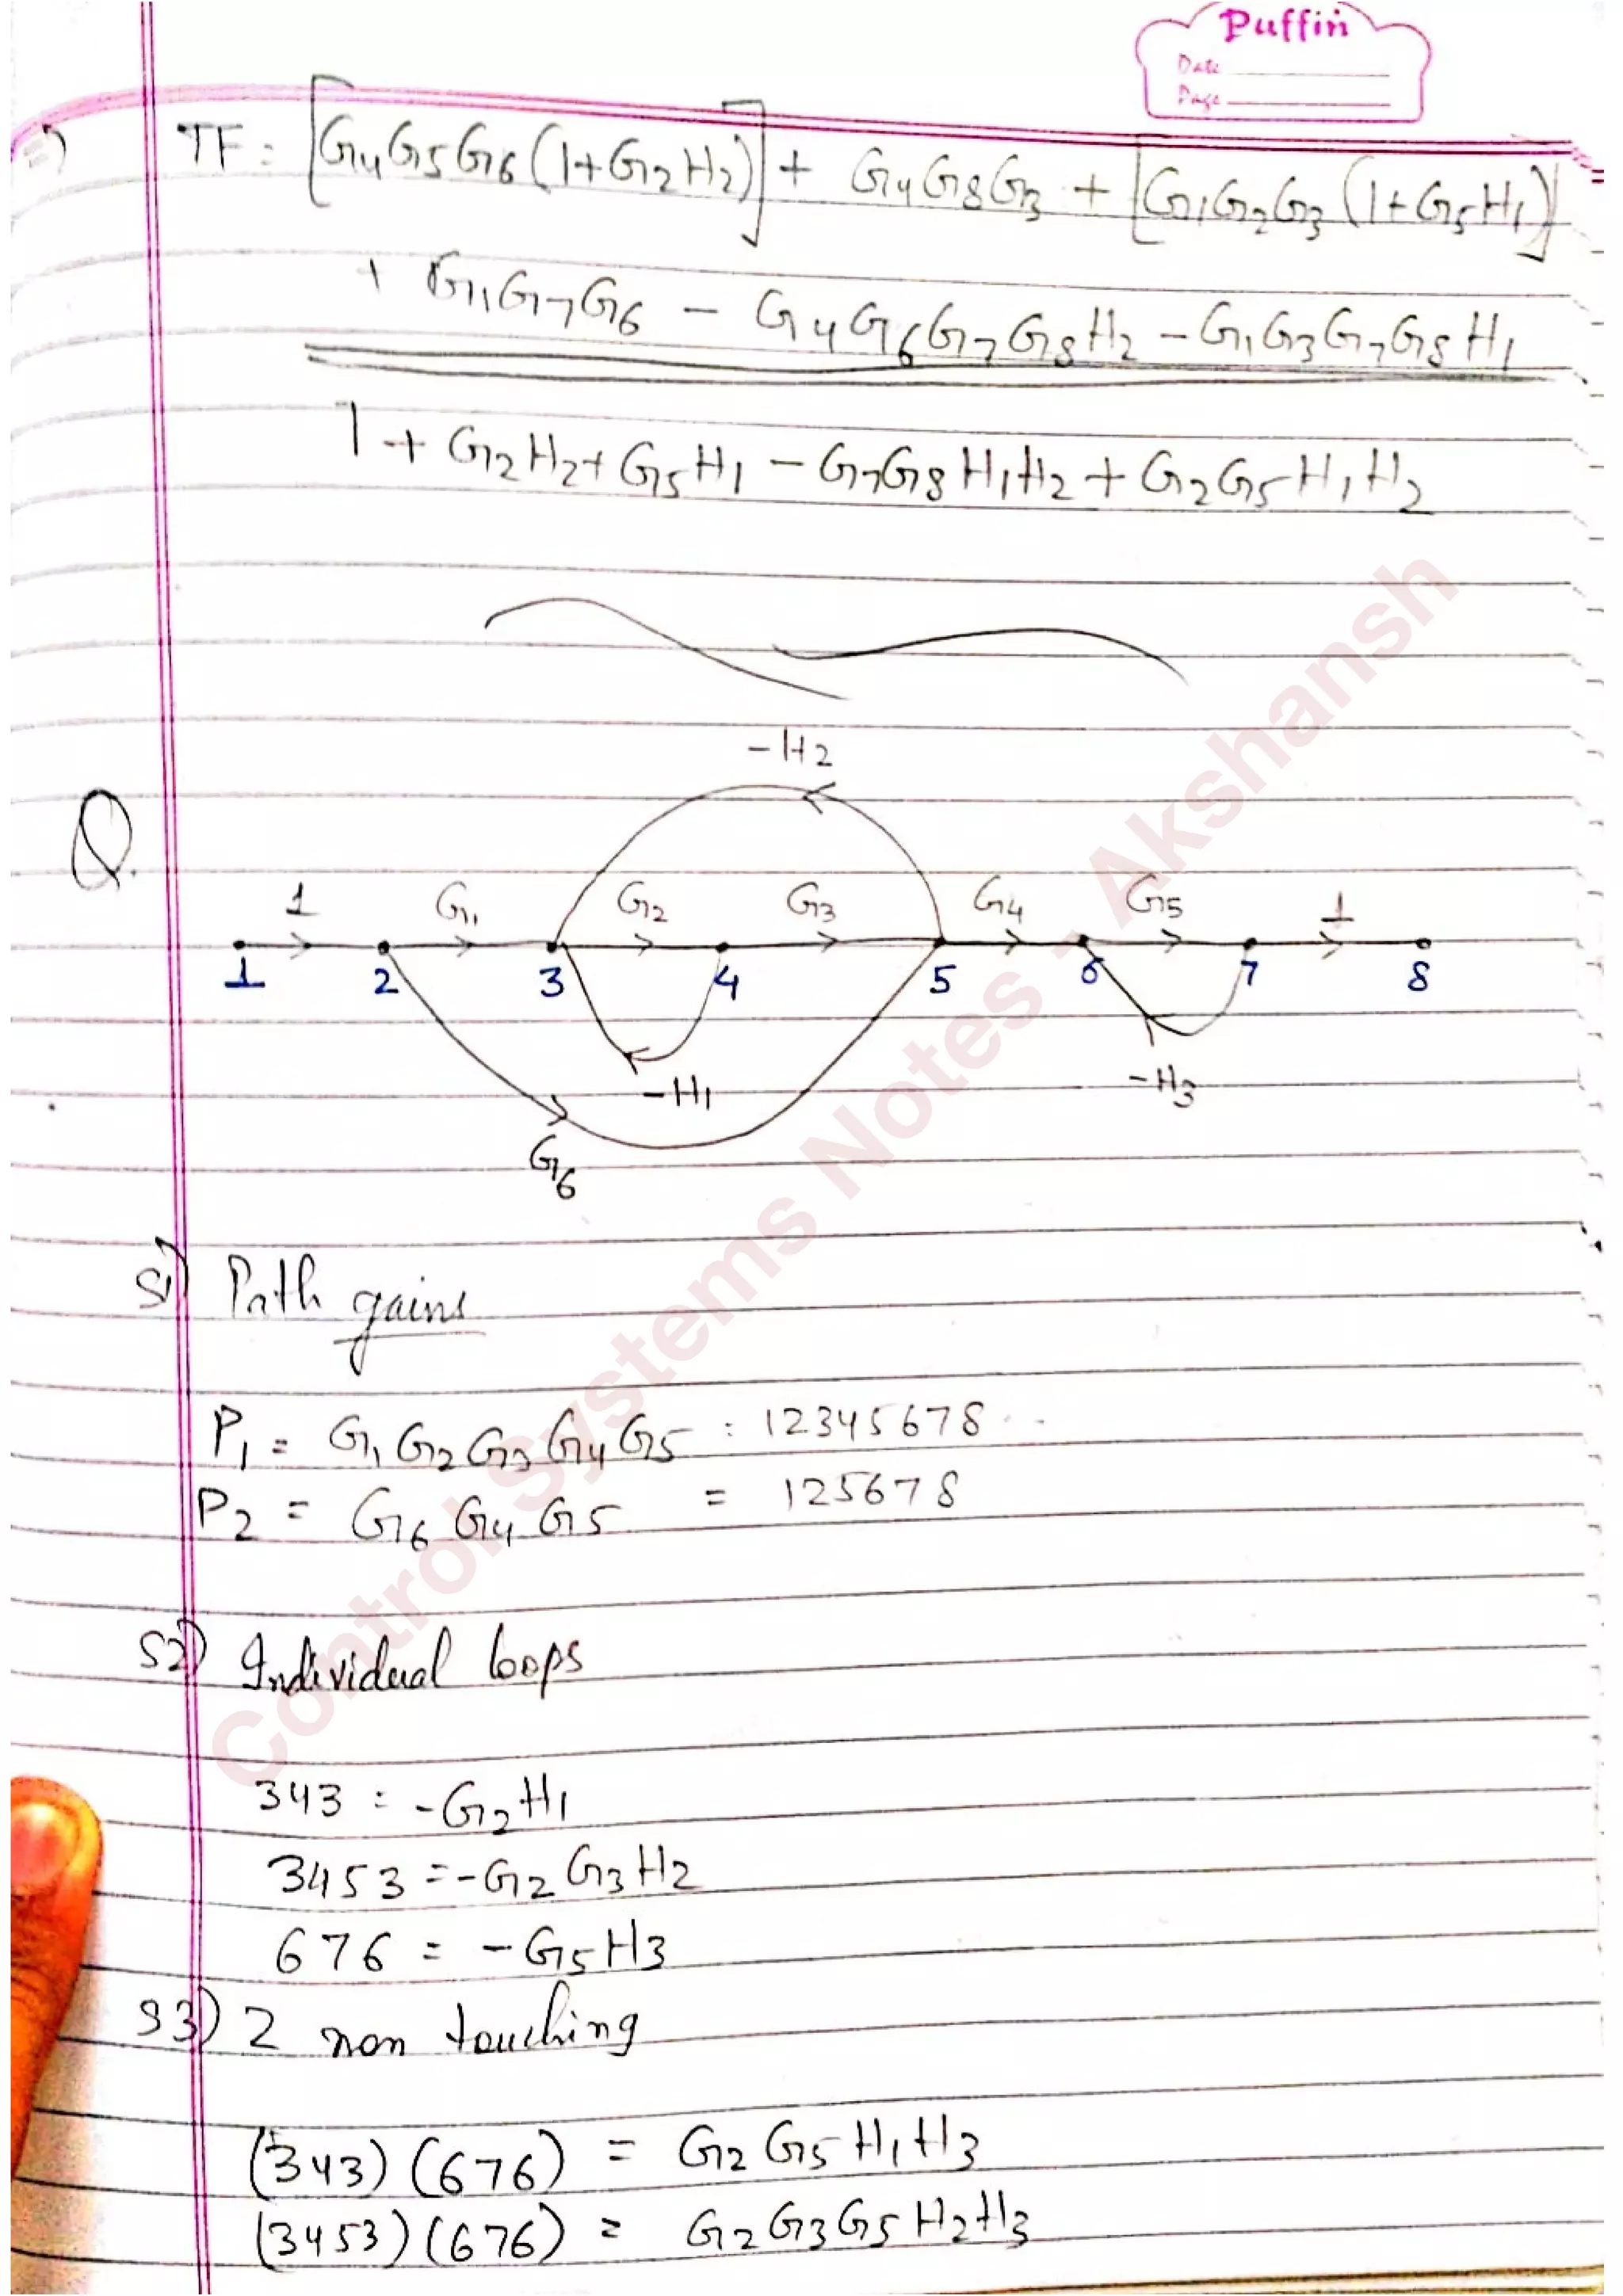 Puffin
Date
Page
=) TF = [G4G5G6(1+G2H2)] + G4G8G3 + [G1G2G3(1+G5H1)]
+ G1G7G6 - G4G6G7G8H2 - G1G3G7G8H1
1 + G2H2 + G5H1 - G7G8H1H2 + G2G5H1H2
-H2
Q.
1 G1 G2 G3 G4 G5 1
1 2 3 4 5 6 7 8
-H1
-H3
G6
S1) Path gains
P1 = G1G2G3G4G5 : 12345678
P2 = G6G4G5 = 125678
S2) Individual loops
343 : -G2H1
3453 = -G2G3H2
676 = -G5H3
S3) 2 non touching
(343)(676) = G2G5H1H3
(3453)(676) = G2G3G5H2H3
Control Systems Notes - Akshansh